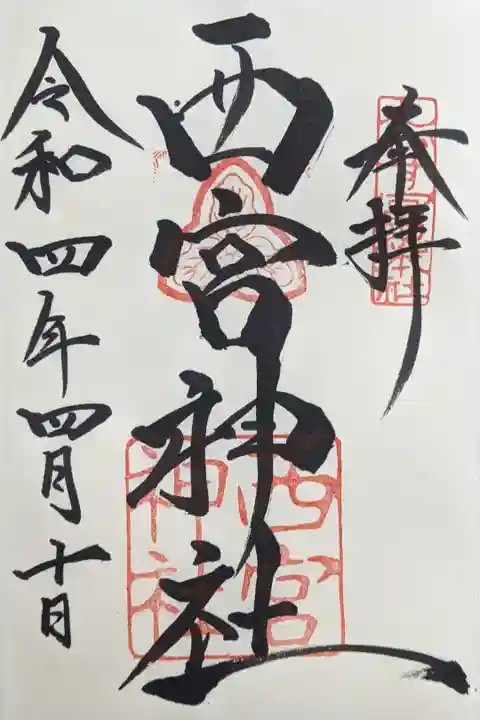 奉拝
西宮神社
令和四年四月十日
西宮
神社